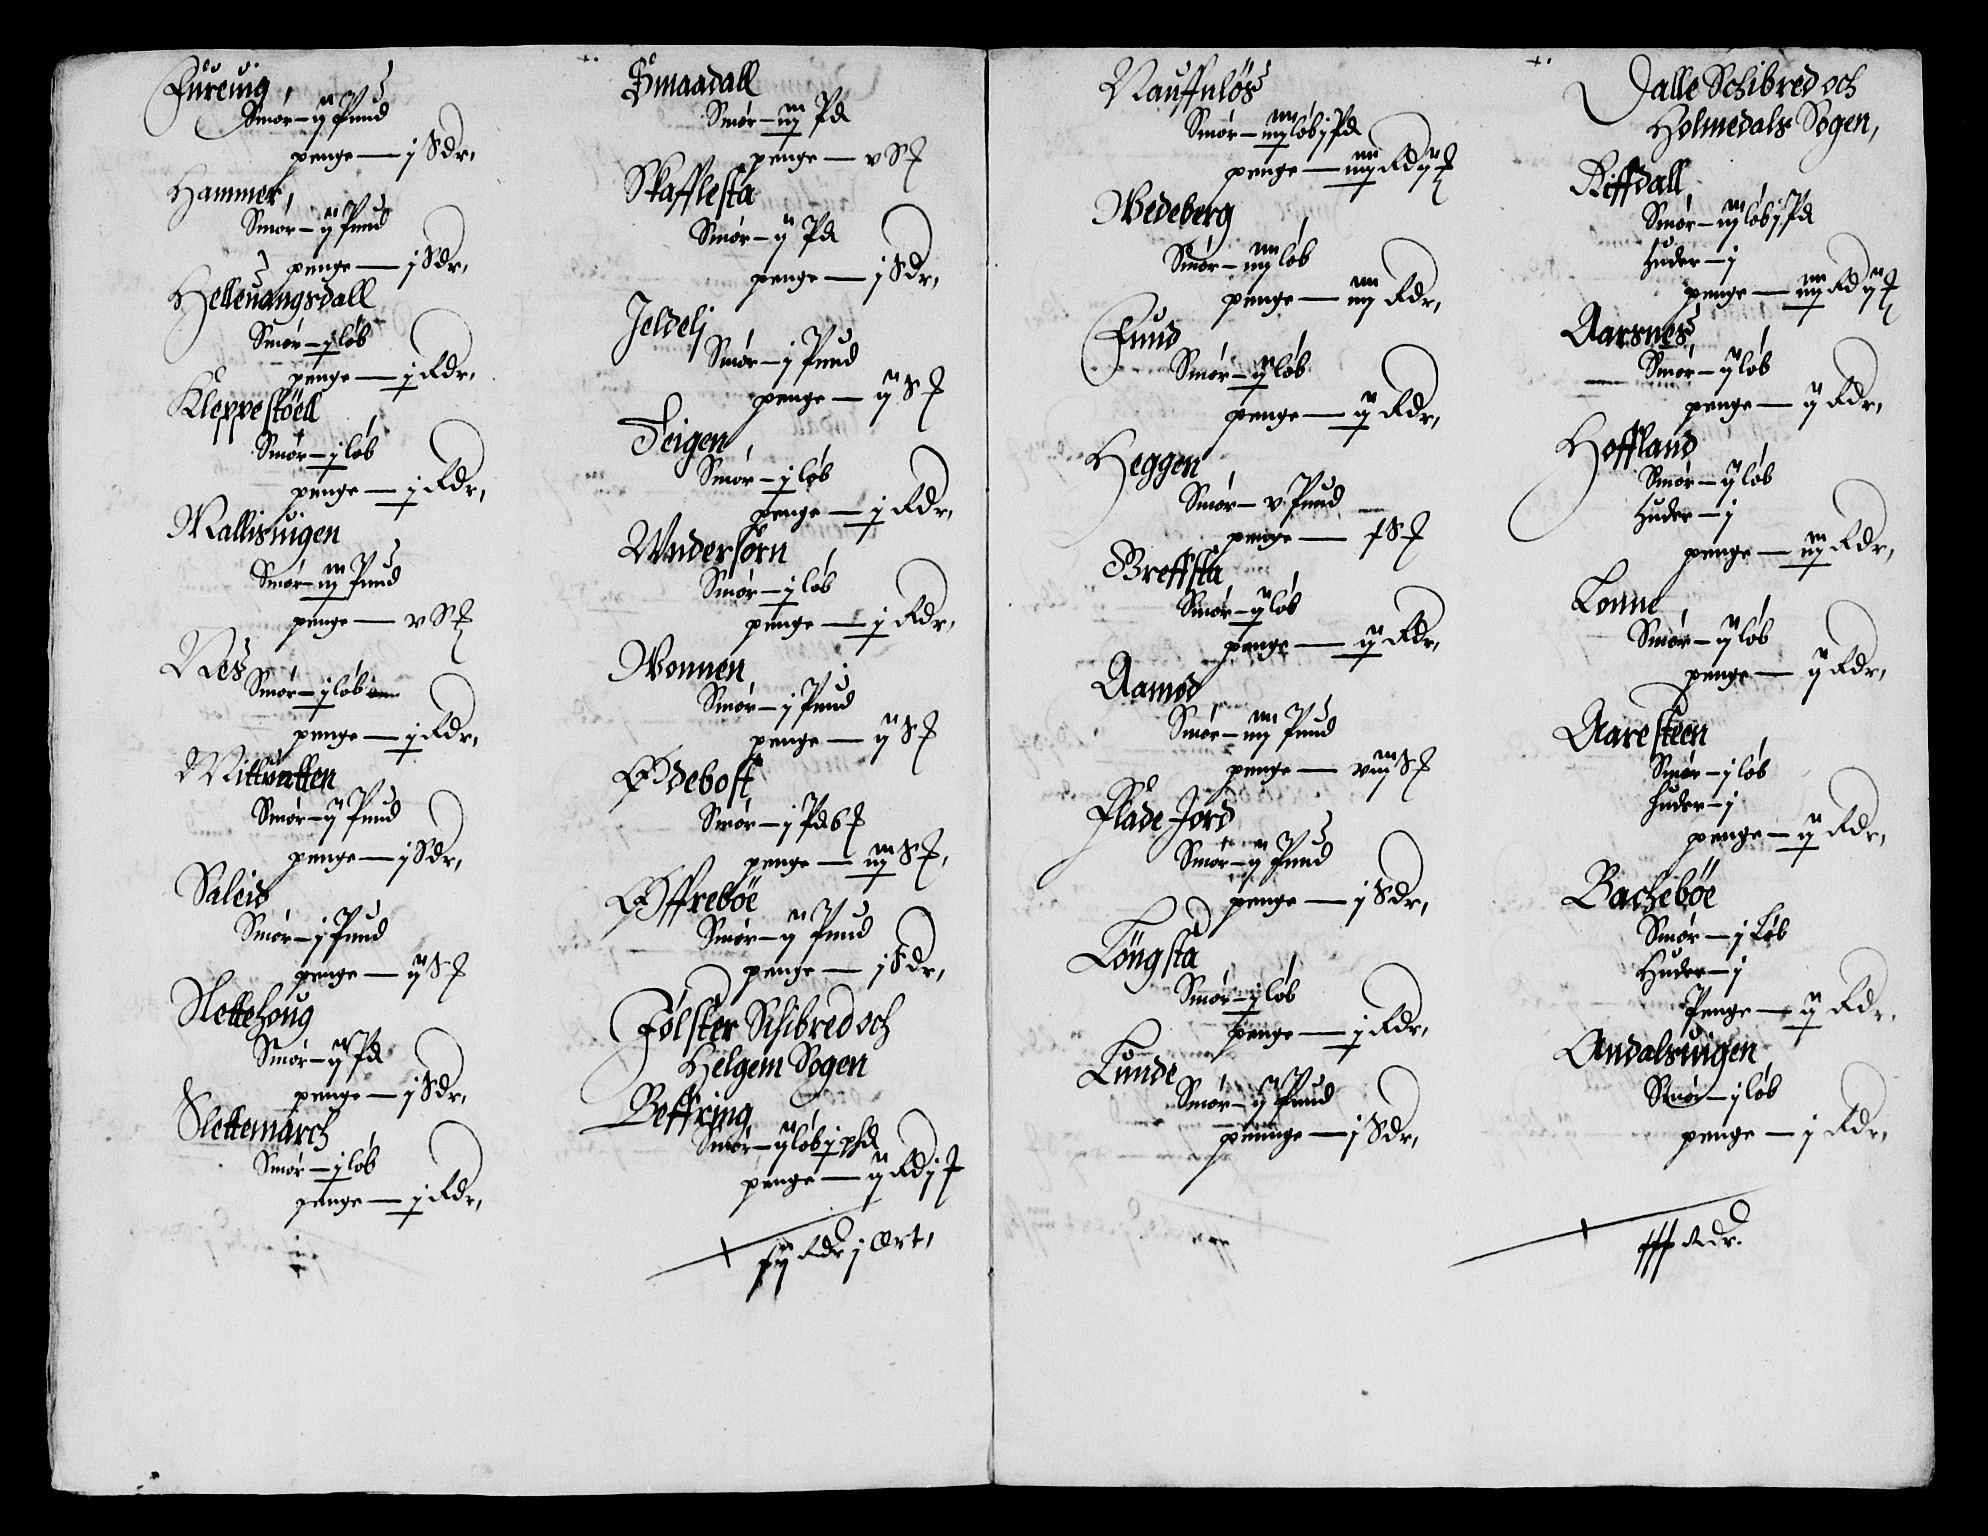 Fureuig,
Smør — ij Pund
penge — j Sdr,
Hammer,
Smør — ij Pund
penge — j Sdr,
Helleuangsdall
Smør — j løb
penge — j Rdr,
Kleppestöell
Smør — j løb
penge — j Rdr,
Mallisuigen
Smør — iij Pund
penge — v S
Nes
Smør — j løb
penge — j Rdr,
Smør — ij Pund
penge — j Sdr,
Saleid
Smør — j Pund
penge — ij S
Slettehoug
Smør — ij Pd
penge — j Sdr,
Slettemarch
Smør — j løb
penge — j Rdr,
Smaadall
Smør — iij Pd
penge — v S
Skafflesta
Smør — ij Pd
penge — j Sdr,
Jeldelj
Smør — j Pund
penge — ij S
Teigen
Smør — j løb
penge — j Rdr,
Vndersorn
Smør — j løb
penge — j Rdr,
Wonnen
Smør — j Pund
penge — ij S
Ødebost
Smør — j Pd 6
penge — iij S
Øffrebøe
Smør — ij Pund
penge — j Sdr,
Jølster Schibred och
Helgem Sogen
Beffring
Smør — ij løb j pd
penge — ij Rd j
Rdr j Ort,
Nauffnløs
Smør — iiij løb j Pd
penge — iiij Rd ij
Wedeberg
Smør — iiij løb
penge — iiij Rdr,
Fund
Smør — ij løb
penge — ij Rdr,
Heggen
Smør — v Pund
penge — S
Breffsta
Smør — ij løb
penge — ij Rdr,
Aamod
Smør — iiij Pund
penge — viij S
Flade Jord
Smør — ij Pund
penge — j Sdr,
Löngsta
Smør — j løb
penge — j Rdr,
Lunde
Smør — ij Pund
penninge — j Sdr,
Dalle Schibred och
Holmedals Sogen,
Riffdall
Smør — iij løb j Pd
Huder — j
penge — iiij Rd ij
Aarsnes
Smør — ij løb
penge — ij Rdr,
Hoffland
Smør — ij løb
Huder — j
penge — iij Rdr,
Lonne
Smør — ij løb
penge — ij Rdr,
Aaresteen
Smør — j løb
Huder — j
penge — ij Rdr,
Bachebøe
Smør — j Løb
Huder — j
Penge — ij Rdr,
Andalsuigen
Smør — j løb
penge — j Rdr,
Rdr.